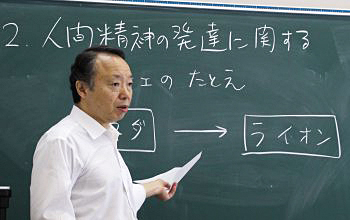 2. 人間精神の発達に関する
ェのたとえ
ダ → ライオン